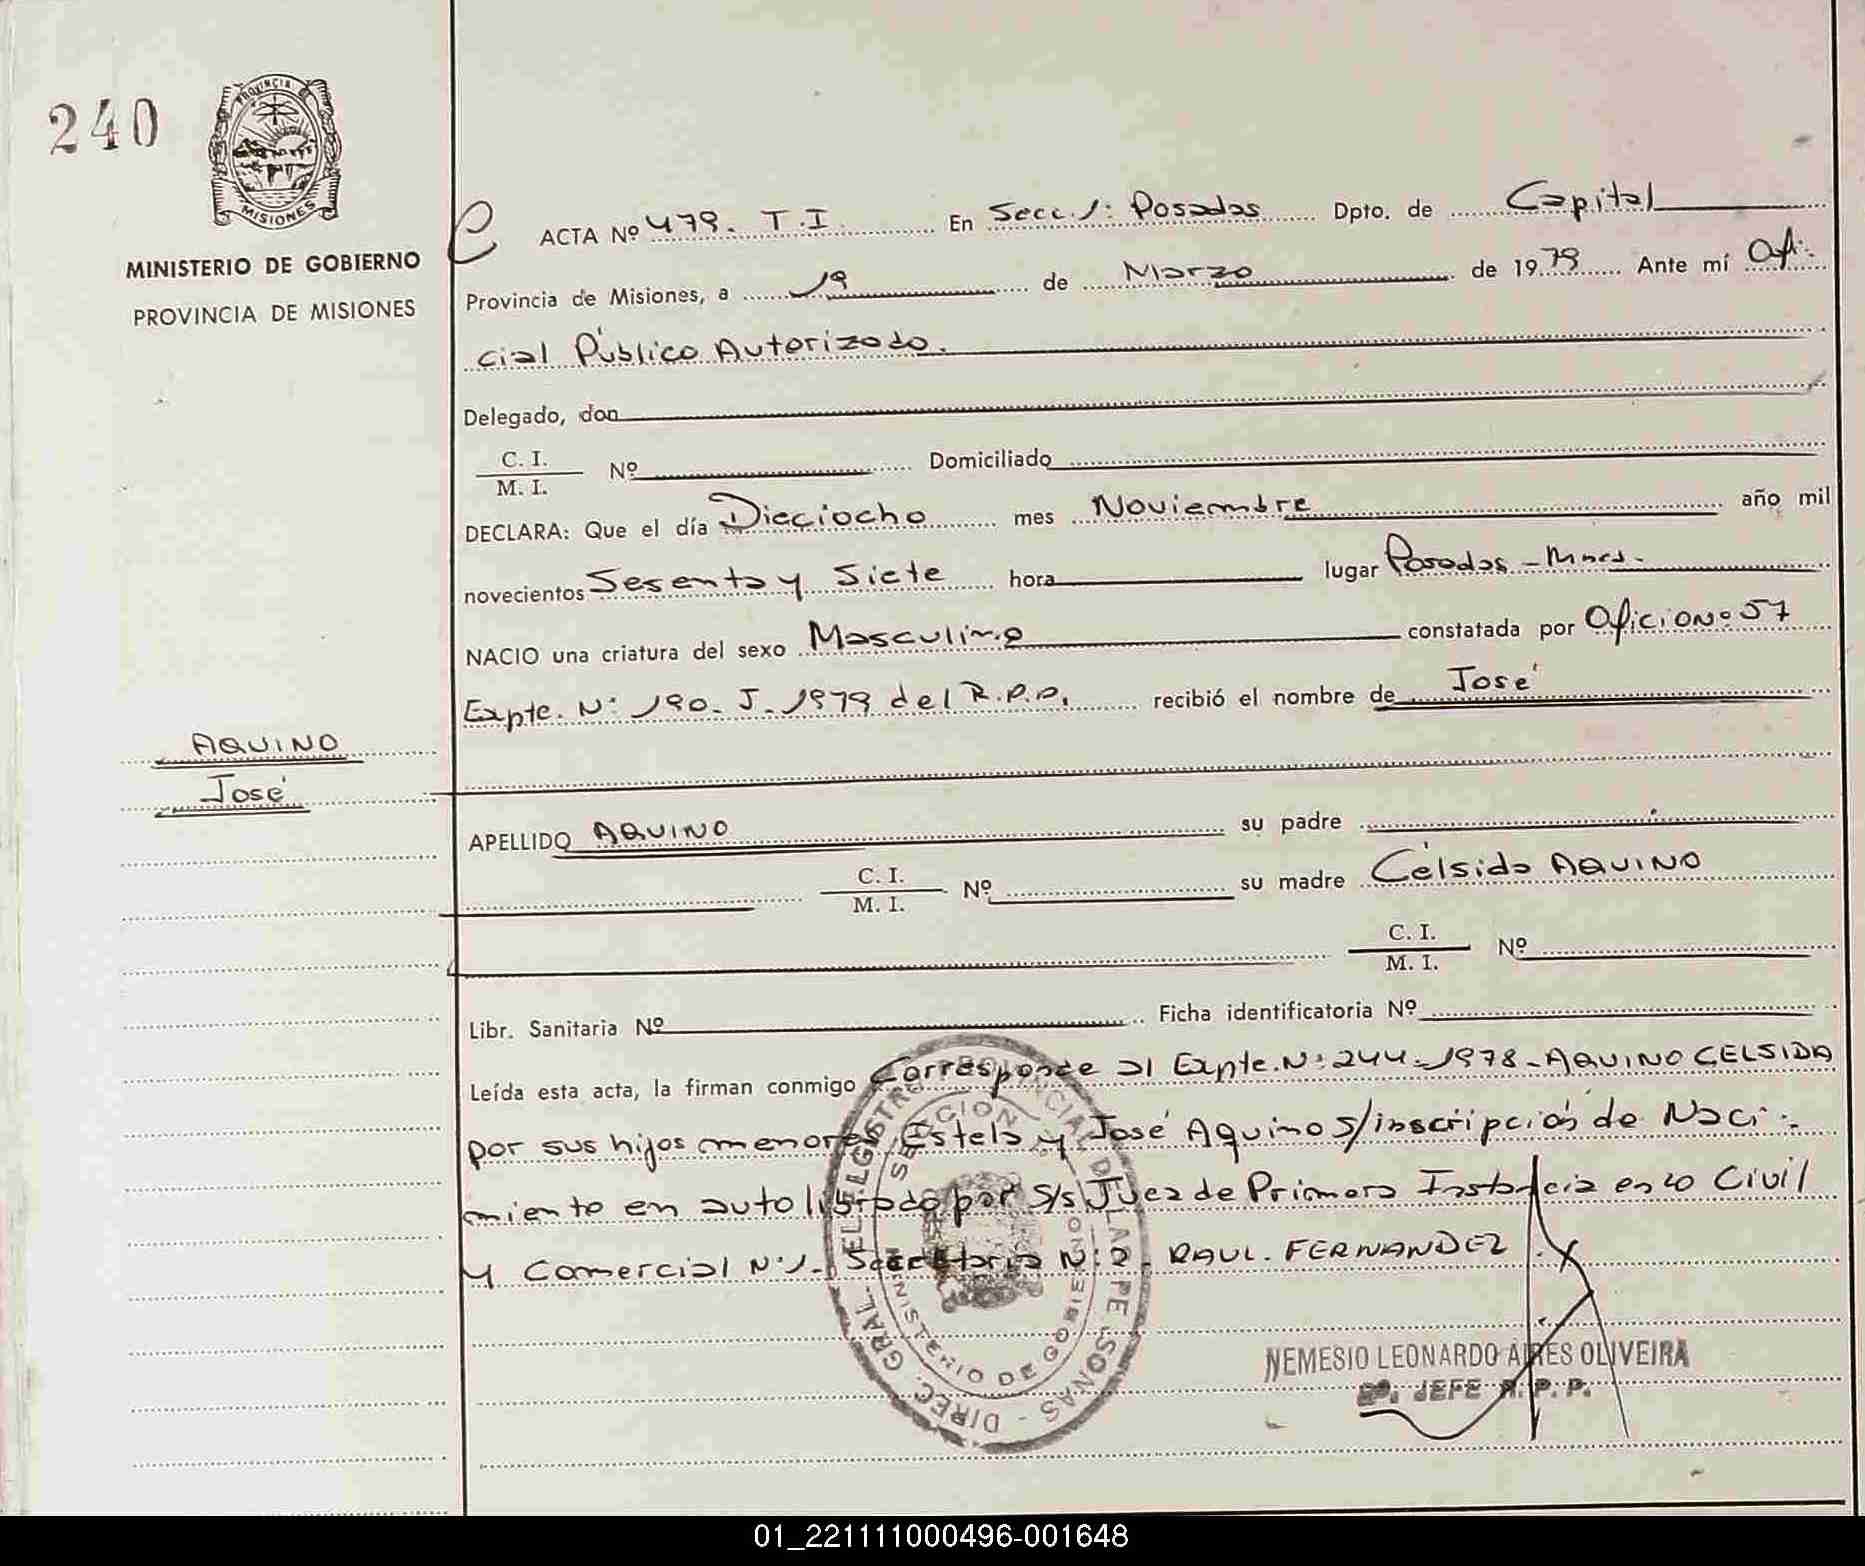 240
PROVINCIA
MISIONES
MINISTERIO DE GOBIERNO
PROVINCIA DE MISIONES
ACTA Nº 479. T.I. En Secc. 1: Posadas Dpto. de Capital
Provincia de Misiones, a 19 de Marzo de 1979 Ante mí Ofi-
cial Público Autorizado.
Delegado, don
C. I.
M. I. Nº Domiciliado
DECLARA: Que el día Dieciocho mes Noviembre año mil
novecientos Sesenta y Siete hora lugar Posadas - Mnes.
NACIO una criatura del sexo Masculino constatada por Oficio Nº 57
Expte. Nº 190. J. 1979 del R.P.P. recibió el nombre de José
AQUINO
José
APELLIDO AQUINO su padre
C. I.
M. I. Nº su madre Célsida AQUINO
C. I.
M. I. Nº
Libr. Sanitaria Nº Ficha identificatoria Nº
Leída esta acta, la firman conmigo Corresponde al Expte. Nº 244-1978-AQUINO CELSIDA
por sus hijos menores Estela y José Aquino S/inscripción de Naci-
miento en auto librado por S/s Juez de Primera Instancia en lo Civil
y Comercial Nº 1. Secretaria Nº 2. RAUL. FERNANDEZ
DIREC. GRAL. DEL REGISTRO PROVINCIAL DE LAS PERSONAS -
SECCION
MINISTERIO DE GOBIERNO
NEMESIO LEONARDO AIRES OLIVEIRA
JEFE R. P. P.
01_221111000496-001648